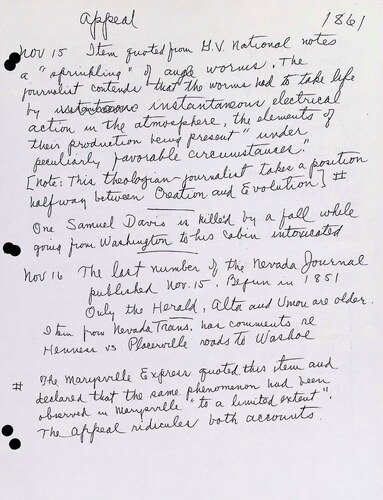 Appeal 1861
Nov 15 Item quoted from G.V. National notes
a "sprinkling" of angle worms. The
journalist contends that the worms had to take life
by instantaneous electrical
action in the atmosphere, the elements of
their production being present "under
peculiarly favorable circumstances."
[Note: This theologian-journalist takes a position
halfway between Creation and Evolution] #
One Samuel Davis is killed by a fall while
going from Washington to his cabin intoxicated
Nov 16 The last number of the Nevada Journal
published Nov. 15. Begun in 1851
Only the Herald, Alta and Union are older.
Item from Nevada Trans. has comments re
Henness vs Placerville roads to Washoe
# The Marysville Express quoted this item and
declared that the same phenomenon had been
observed in Marysville "to a limited extent".
The Appeal ridicules both accounts.